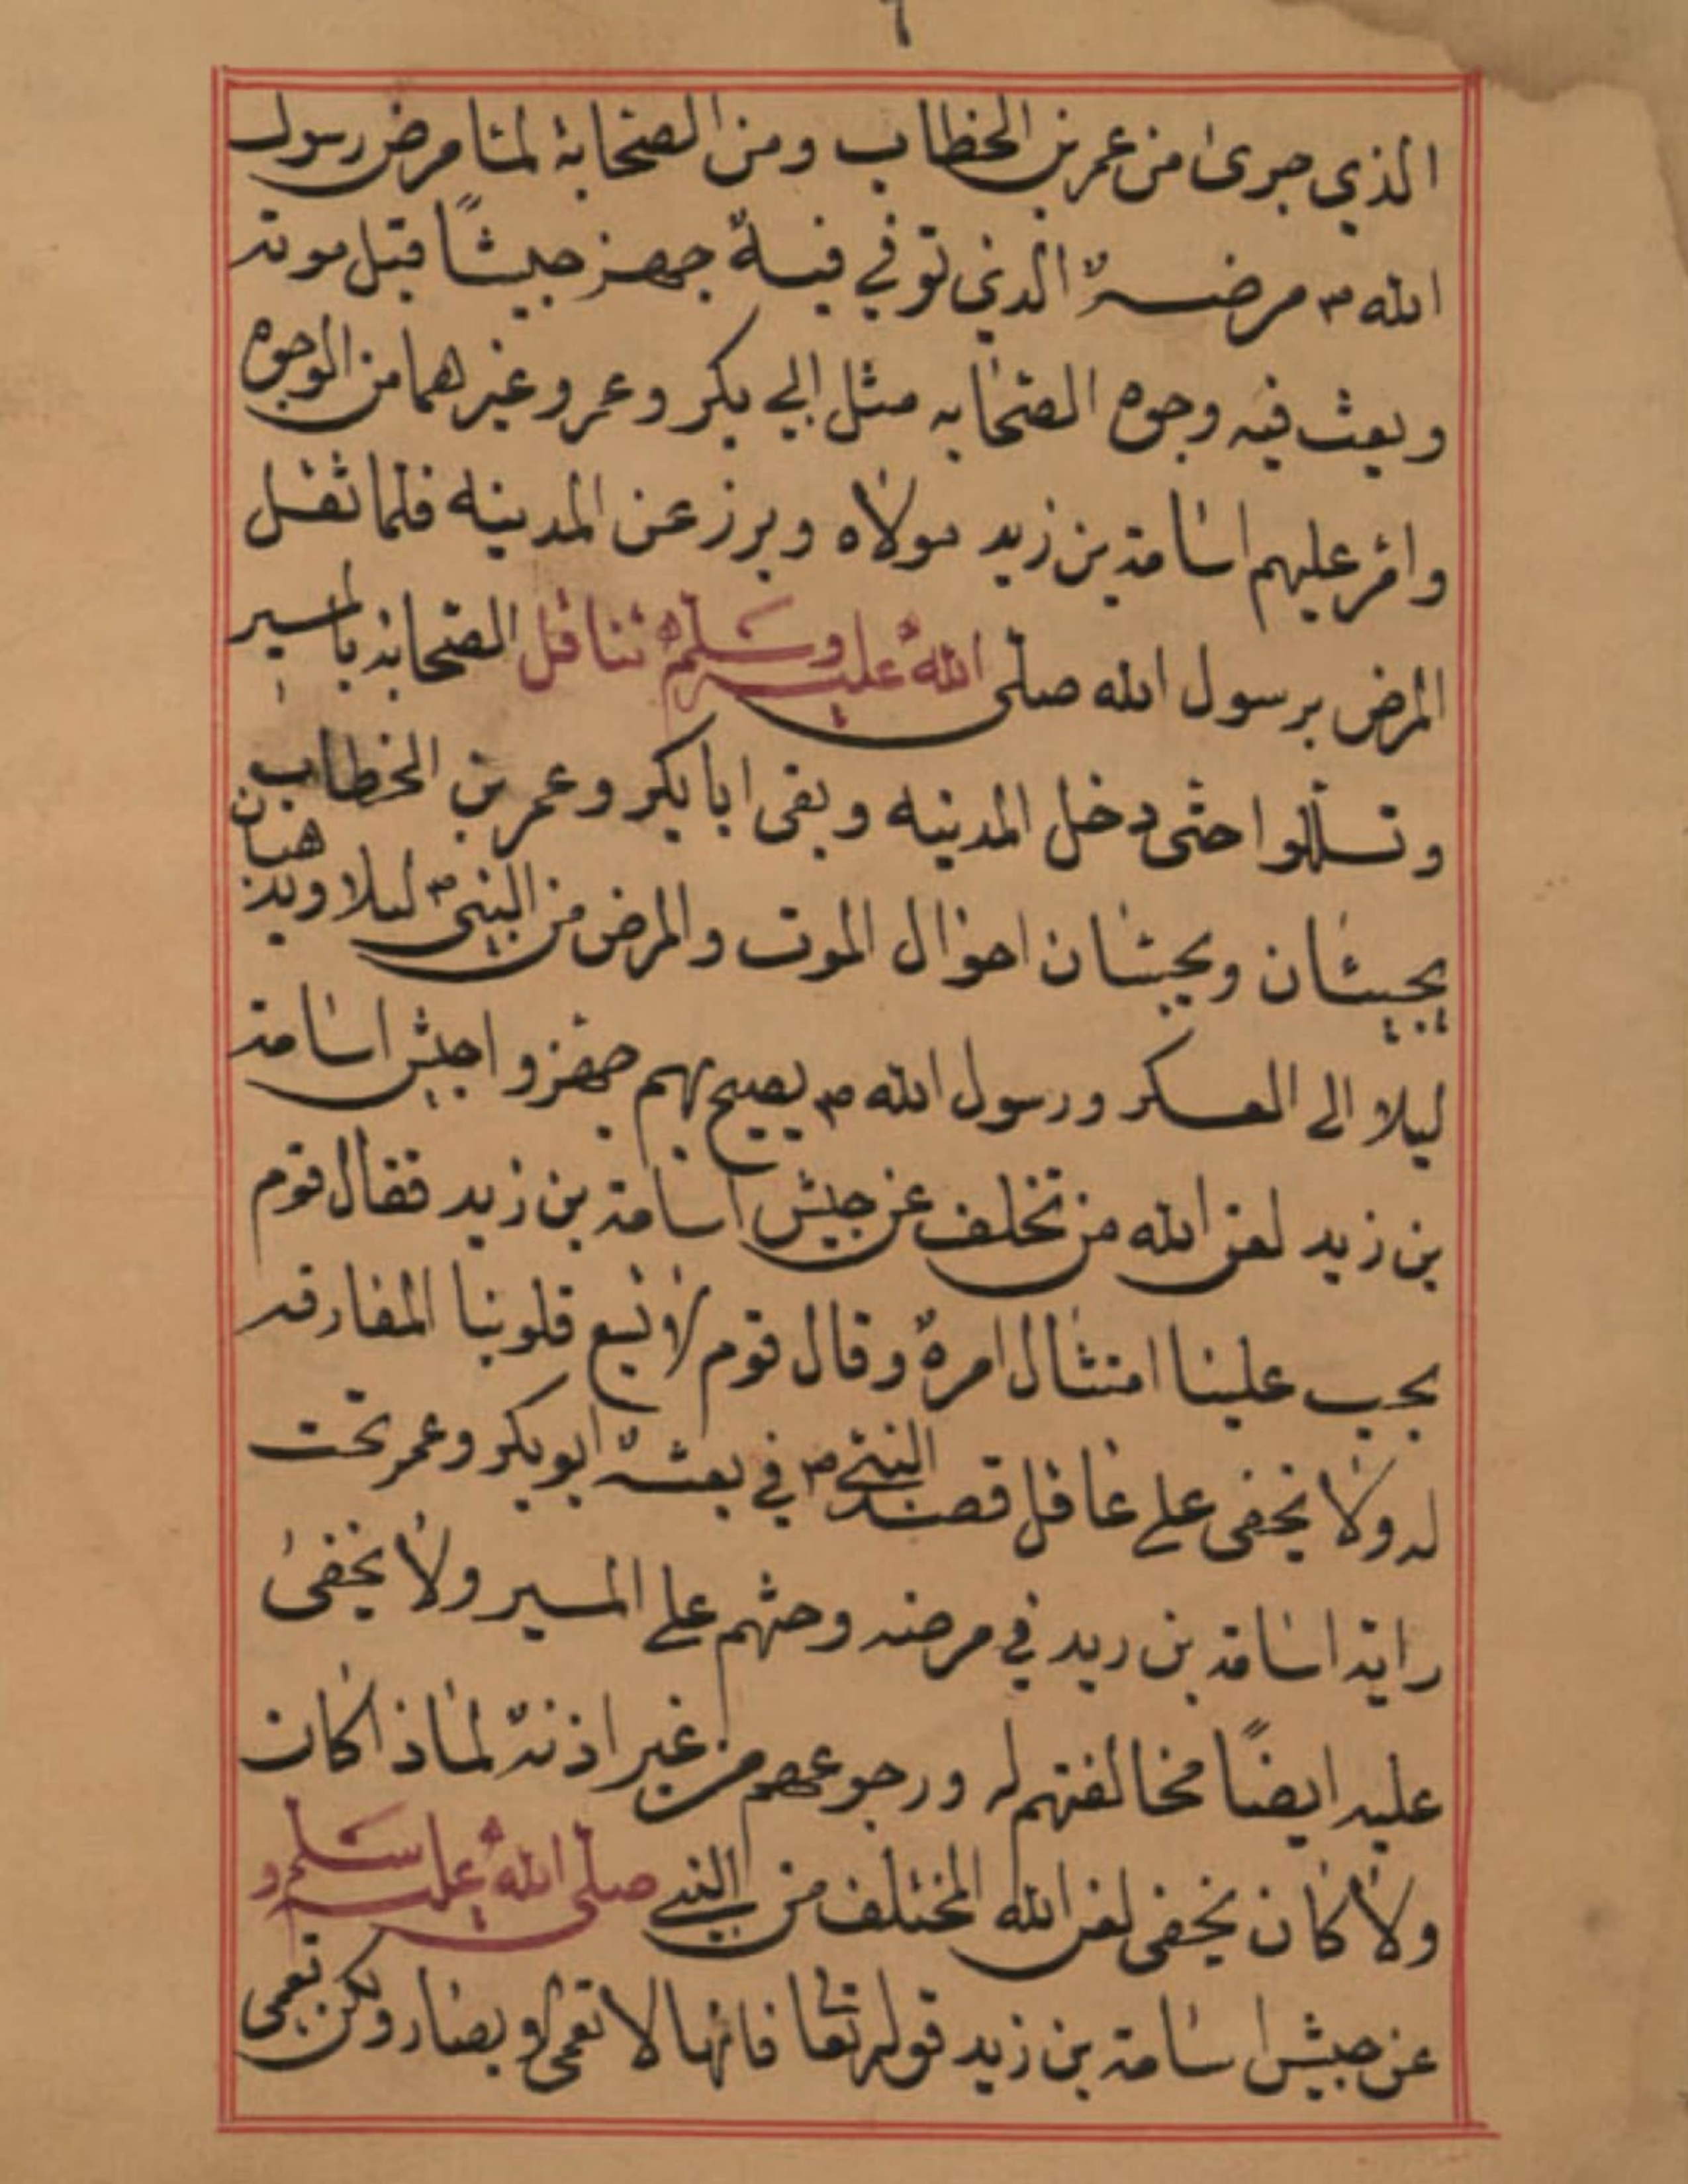 ٦
الذي جرى من عمر بن الخطاب ومن الصحابة لمتا مرض رسول
الله ص مرضه الذي توفي فيه جهز جيشًا قبل موته
وبعث فيه وجوه الصحابه مثل ابي بكر وعمر وغيرهما من الوجوه
وامر عليهم اسامة بن زيد مولاه وبرز عن المدينه فلما ثقل
المرض برسول الله صلى الله عليه وسلم تثاقل الصحابه بالمسير
وتسللوا حتى دخل المدينه وبقى ابا بكر وعمر بن الخطاب
يجيئان ويجسسان احوال الموت والمرض من النبي ص ليلا ويذهبان
ليلا الى المعسكر ورسول الله ص يصيح بهم جهزوا جيش اسامة
بن زيد لعن الله من تخلف عن جيش اسامة بن زيد فقال قوم
يجب علينا امتثال امره وقال قوم لا تسع قلوبنا المفارقه
له ولا يخفى على عاقل قصد النبي ص في بعثه ابو بكر وعمر تحت
راية اسامة بن ريد في مرضه وحثهم على المسير ولا يخفى
عليه ايضًا مخالفتهم له ورجوعهم من غير اذنه لماذا كان
ولا كان يخفى لعن الله المختلف من النبي صلى الله عليه وسلم
عن جيش اسامة بن زيد قوله تعا فانها لا تعمى لابصار ولكن تعمى